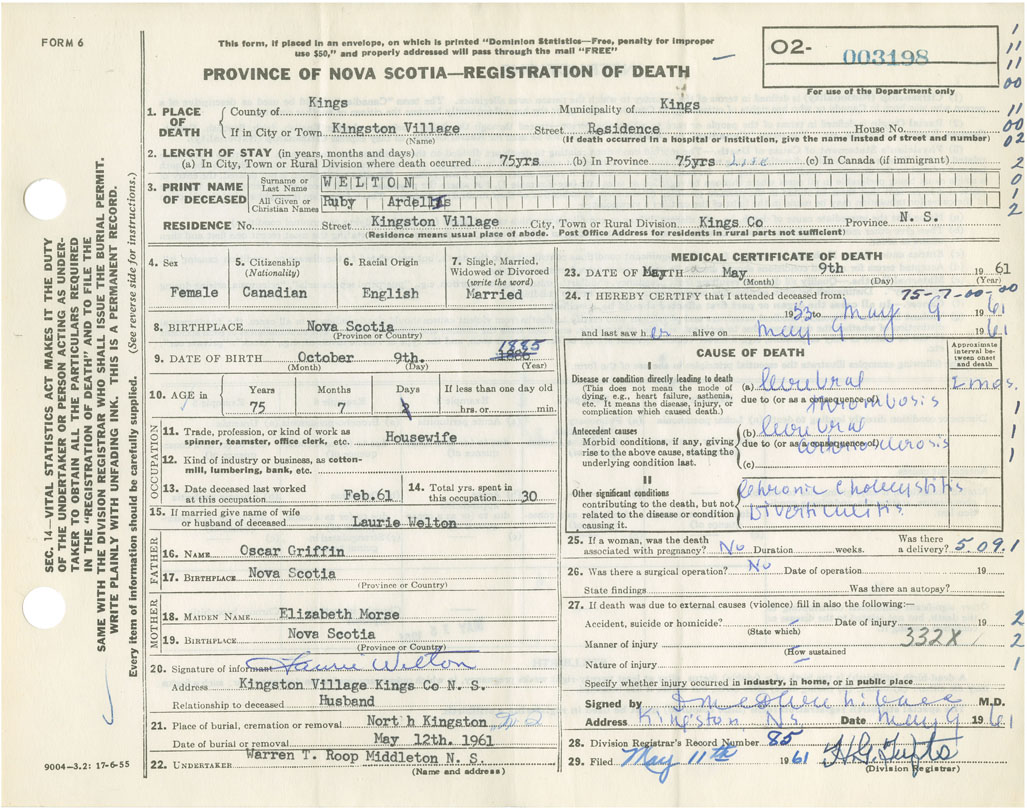 FORM 6
This form, if placed in an envelope, on which is printed "Dominion Statistics—Free, penalty for improper
use $50," and properly addressed will pass through the mail "FREE"
PROVINCE OF NOVA SCOTIA—REGISTRATION OF DEATH
02- 003198
For use of the Department only
SEC. 14—VITAL STATISTICS ACT MAKES IT THE DUTY
OF THE UNDERTAKER OR PERSON ACTING AS UNDER-
TAKER TO OBTAIN ALL THE PARTICULARS REQUIRED
IN THE "REGISTRATION OF DEATH" AND TO FILE THE
SAME WITH THE DIVISION REGISTRAR WHO SHALL ISSUE THE BURIAL PERMIT.
WRITE PLAINLY WITH UNFADING INK. THIS IS A PERMANENT RECORD.
Every item of information should be carefully supplied. (See reverse side for instructions.)
1. PLACE OF DEATH
County of Kings Municipality of Kings
If in City or Town Kingston Village Street Residence House No.
(Name) (If death occurred in a hospital or institution, give the name instead of street and number)
2. LENGTH OF STAY (in years, months and days)
(a) In City, Town or Rural Division where death occurred 75yrs (b) In Province 75yrs Life (c) In Canada (if immigrant)
3. PRINT NAME OF DECEASED
Surname or Last Name WELTON
All Given or Christian Names Ruby
RESIDENCE No. Street Kingston Village City, Town or Rural Division Kings Co Province N. S.
(Residence means usual place of abode. Post Office Address for residents in rural parts not sufficient)
4. Sex Female
5. Citizenship (Nationality) Canadian
6. Racial Origin English
7. Single, Married, Widowed or Divorced (write the word) Married
8. BIRTHPLACE Nova Scotia
(Province or Country)
9. DATE OF BIRTH October 9th. 1885 1886
(Month) (Day) (Year)
10. AGE in Years Months Days If less than one day old
75 7 hrs. or min.
OCCUPATION
11. Trade, profession, or kind of work as
spinner, teamster, office clerk, etc. Housewife
12. Kind of industry or business, as cotton-
mill, lumbering, bank, etc.
13. Date deceased last worked at this occupation Feb.61
14. Total yrs. spent in this occupation 30
15. If married give name of wife
or husband of deceased Laurie Welton
FATHER
16. NAME Oscar Griffin
17. BIRTHPLACE Nova Scotia
(Province or Country)
MOTHER
18. MAIDEN NAME Elizabeth Morse
19. BIRTHPLACE Nova Scotia
(Province or Country)
20. Signature of informant Laurie Welton
Address Kingston Village Kings Co N. S.
Relationship to deceased Husband
21. Place of burial, cremation or removal North Kingston
Date of burial or removal May 12th. 1961
22. UNDERTAKER Warren T. Roop Middleton N. S.
(Name and address)
9004-3.2: 17-6-55
MEDICAL CERTIFICATE OF DEATH
23. DATE OF DEATH May 9th 1961
(Month) (Day) (Year)
75-7-00-00
24. I HEREBY CERTIFY that I attended deceased from:
1953 to May 9 1961
and last saw her alive on May 9 1961
CAUSE OF DEATH
Approximate interval between onset and death
I
Disease or condition directly leading to death
(This does not mean the mode of
dying, e.g., heart failure, asthenia,
etc. It means the disease, injury, or
complication which caused death.)
(a) Cerebral
due to (or as a consequence of)
Thrombosis
2 mos.
Antecedent causes
Morbid conditions, if any, giving
rise to the above cause, stating the
underlying condition last.
(b) Cerebral
due to (or as a consequence of)
(c)
II
Other significant conditions
contributing to the death, but not
related to the disease or condition
causing it.
Chronic Cholecystitis
Diverticulitis
25. If a woman, was the death
associated with pregnancy? No Duration weeks. Was there a delivery? 5.09.1
26. Was there a surgical operation? No Date of operation 19
State findings Was there an autopsy?
27. If death was due to external causes (violence) fill in also the following:—
Accident, suicide or homicide? Date of injury 19
(State which)
Manner of injury 332X
(How sustained
Nature of injury
Specify whether injury occurred in industry, in home, or in public place
Signed by M.D.
Address Kingston NS Date May 9 1961
28. Division Registrar's Record Number 85
29. Filed May 11th 1961
(Division Registrar)